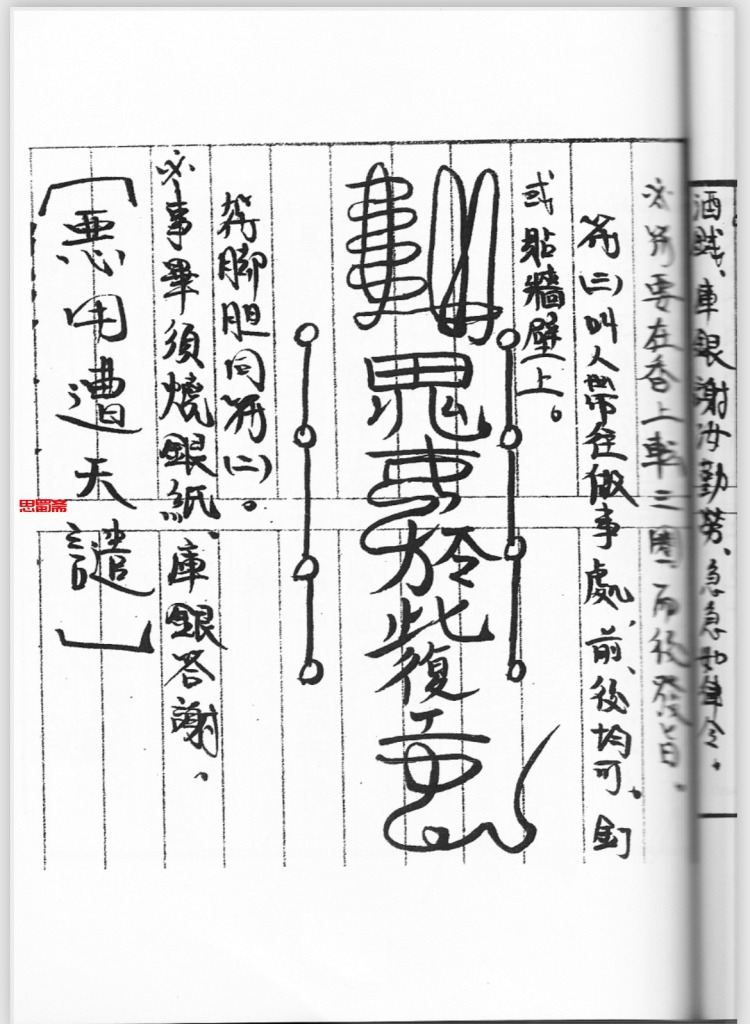 酒餞、庫銀謝汝勤勞、急急如律令。
必另要在香上転三圈而後發旨。
符(三)叫人帶往做事處,前、後均可。釘
或貼牆壁上。
於此復
符脚胆同符(二)。
必事畢須燒銀紙、庫銀答謝。
[惡用遭天譴]
思蜀齋